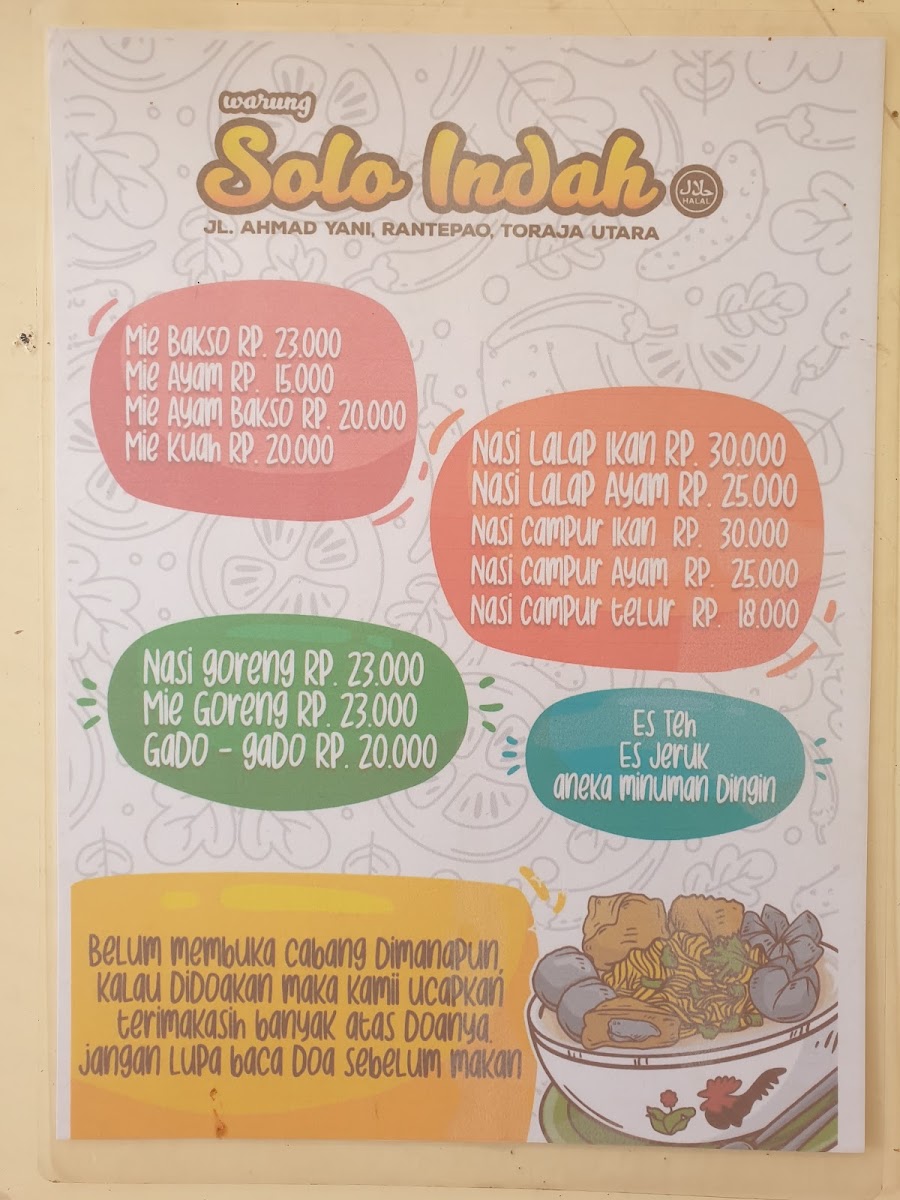 warung
Solo Indah
حلال
HALAL
JL. AHMAD YANI, RANTEPAO, TORAJA UTARA
Mie Bakso RP. 23.000
Mie Ayam RP. 15.000
Mie Ayam Bakso RP. 20.000
Mie Kuah RP. 20.000
Nasi Lalap Ikan RP. 30.000
Nasi Lalap Ayam RP. 25.000
Nasi Campur Ikan RP. 30.000
Nasi Campur Ayam RP. 25.000
Nasi Campur Telur RP. 18.000
Nasi Goreng RP. 23.000
Mie Goreng RP. 23.000
Gado - gado RP. 20.000
Es Teh
Es Jeruk
aneka minuman Dingin
Belum membuka cabang Dimanapun,
kalau Didoakan maka kamii ucapkan
terimakasih banyak atas Doanya.
jangan Lupa baca Doa sebelum makan